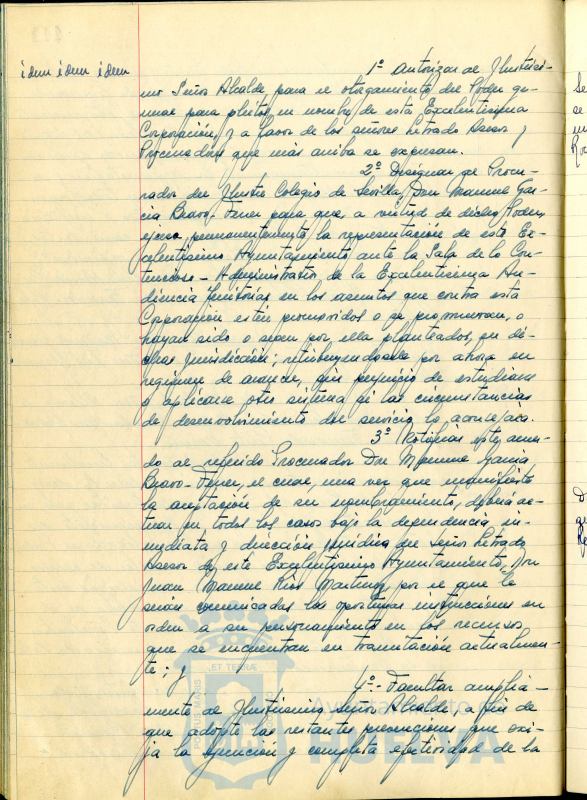 idem idem idem
1º Autorizar al Ilustrísi-
mo Señor Alcalde para el otorgamiento del Poder ge-
neral para pleitos en nombre de esta Excelentísima
Corporación y a favor de los señores Letrado Asesor y
Procuradores que más arriba se expresan.
2º Designar al Procu-
rador del Ilustre Colegio de Sevilla, Don Manuel Gar-
cía Bravo-Ferrer para que, a virtud de dicho Poder,
ejerza permanentemente la representación de este Ex-
celentísimo Ayuntamiento ante la Sala de lo Con-
tencioso-Administrativo de la Excelentísima Au-
diencia Territorial en los asuntos que contra esta
Corporación estén promovidos o se promuevan, o
hayan sido o sean por ella planteados, en di-
cha Jurisdicción; retribuyéndosele por ahora en
régimen de arancel, sin perjuicio de estudiarse
o aplicarse otro sistema si las circunstancias
de desenvolvimiento del servicio lo aconsejara.
3º Notificar este acuer-
do al referido Procurador Don Manuel García
Bravo-Ferrer, el cual, una vez que manifieste
la aceptación de su nombramiento, deberá ac-
tuar en todos los casos bajo la dependencia in-
mediata y dirección jurídica del Señor Letrado
Asesor de este Excelentísimo Ayuntamiento, Don
Juan Manuel Ríos Martínez, por el que le
serán comunicadas las oportunas instrucciones en
orden a su personamiento en los recursos
que se encuentran en tramitación actualmen-
te; y
4º.- Facultar amplia-
mente al Ilustrísimo Señor Alcalde, a fin de
que adopte las restantes prevenciones que exi-
ja la ejecución y completa efectividad de la
ET TERRÆ
Ayuntamiento de
HUELVA